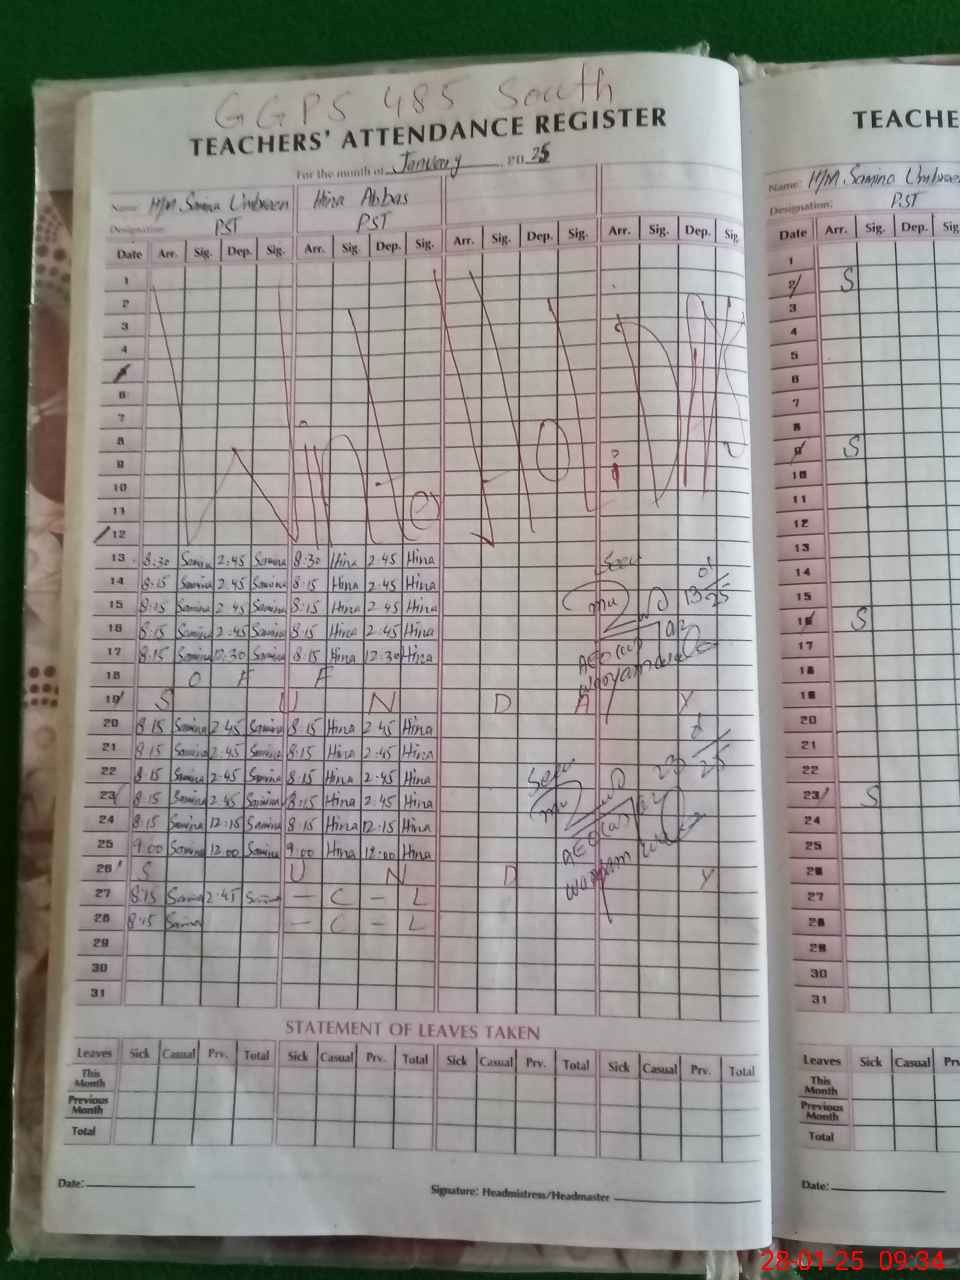 GGPS 485 South
TEACHERS' ATTENDANCE REGISTER
For the month of January 20 25
Name: H/M. Samina Umbreen Hina Abbas
Designation: PST PST
Date Arr. Sig. Dep. Sig. Arr. Sig. Dep. Sig. Arr. Sig. Dep. Sig. Arr. Sig. Dep. Sig.
1
2
3
4
5
6
7
8
9
10
11
12
Winter Holidays
13 8:30 Samina 2:45 Samina 8:30 Hina 2:45 Hina
14 8:15 Samina 2:45 Samina 8:15 Hina 2:45 Hina
15 8:15 Samina 2:45 Samina 8:15 Hina 2:45 Hina
16 8:15 Samina 2:45 Samina 8:15 Hina 2:45 Hina
17 8:15 Samina 12:30 Samina 8:15 Hina 12:30 Hina
18 O F F
19 S U N D A Y
20 8:15 Samina 2:45 Samina 8:15 Hina 2:45 Hina
21 8:15 Samina 2:45 Samina 8:15 Hina 2:45 Hina
22 8:15 Samina 2:45 Samina 8:15 Hina 2:45 Hina
23 8:15 Samina 2:45 Samina 8:15 Hina 2:45 Hina
24 8:15 Samina 12:15 Samina 8:15 Hina 12:15 Hina
25 9:00 Samina 12:00 Samina 9:00 Hina 12:00 Hina
26 S U N D A Y
27 8:15 Samina 2:45 Samina — C — L
28 8:15 Samina — C — L
29
30
31
Seen
13 01 25
AEO
Seen
23 25
AEO
STATEMENT OF LEAVES TAKEN
Leaves Sick Casual Prv. Total Sick Casual Prv. Total Sick Casual Prv. Total Sick Casual Prv. Total
This Month
Previous Month
Total
Date: Signature: Headmistress/Headmaster
TEACHE
Name: H/M. Samina Umbreen
Designation: PST
Date Arr. Sig. Dep. Sig
1
2 S
3
4
5
6
7
8
9 S
10
11
12
13
14
15
16 S
17
18
19
20
21
22
23 S
24
25
26
27
28
29
30
31
Leaves Sick Casual Pr
This Month
Previous Month
Total
Date:
28-01-25 09:34